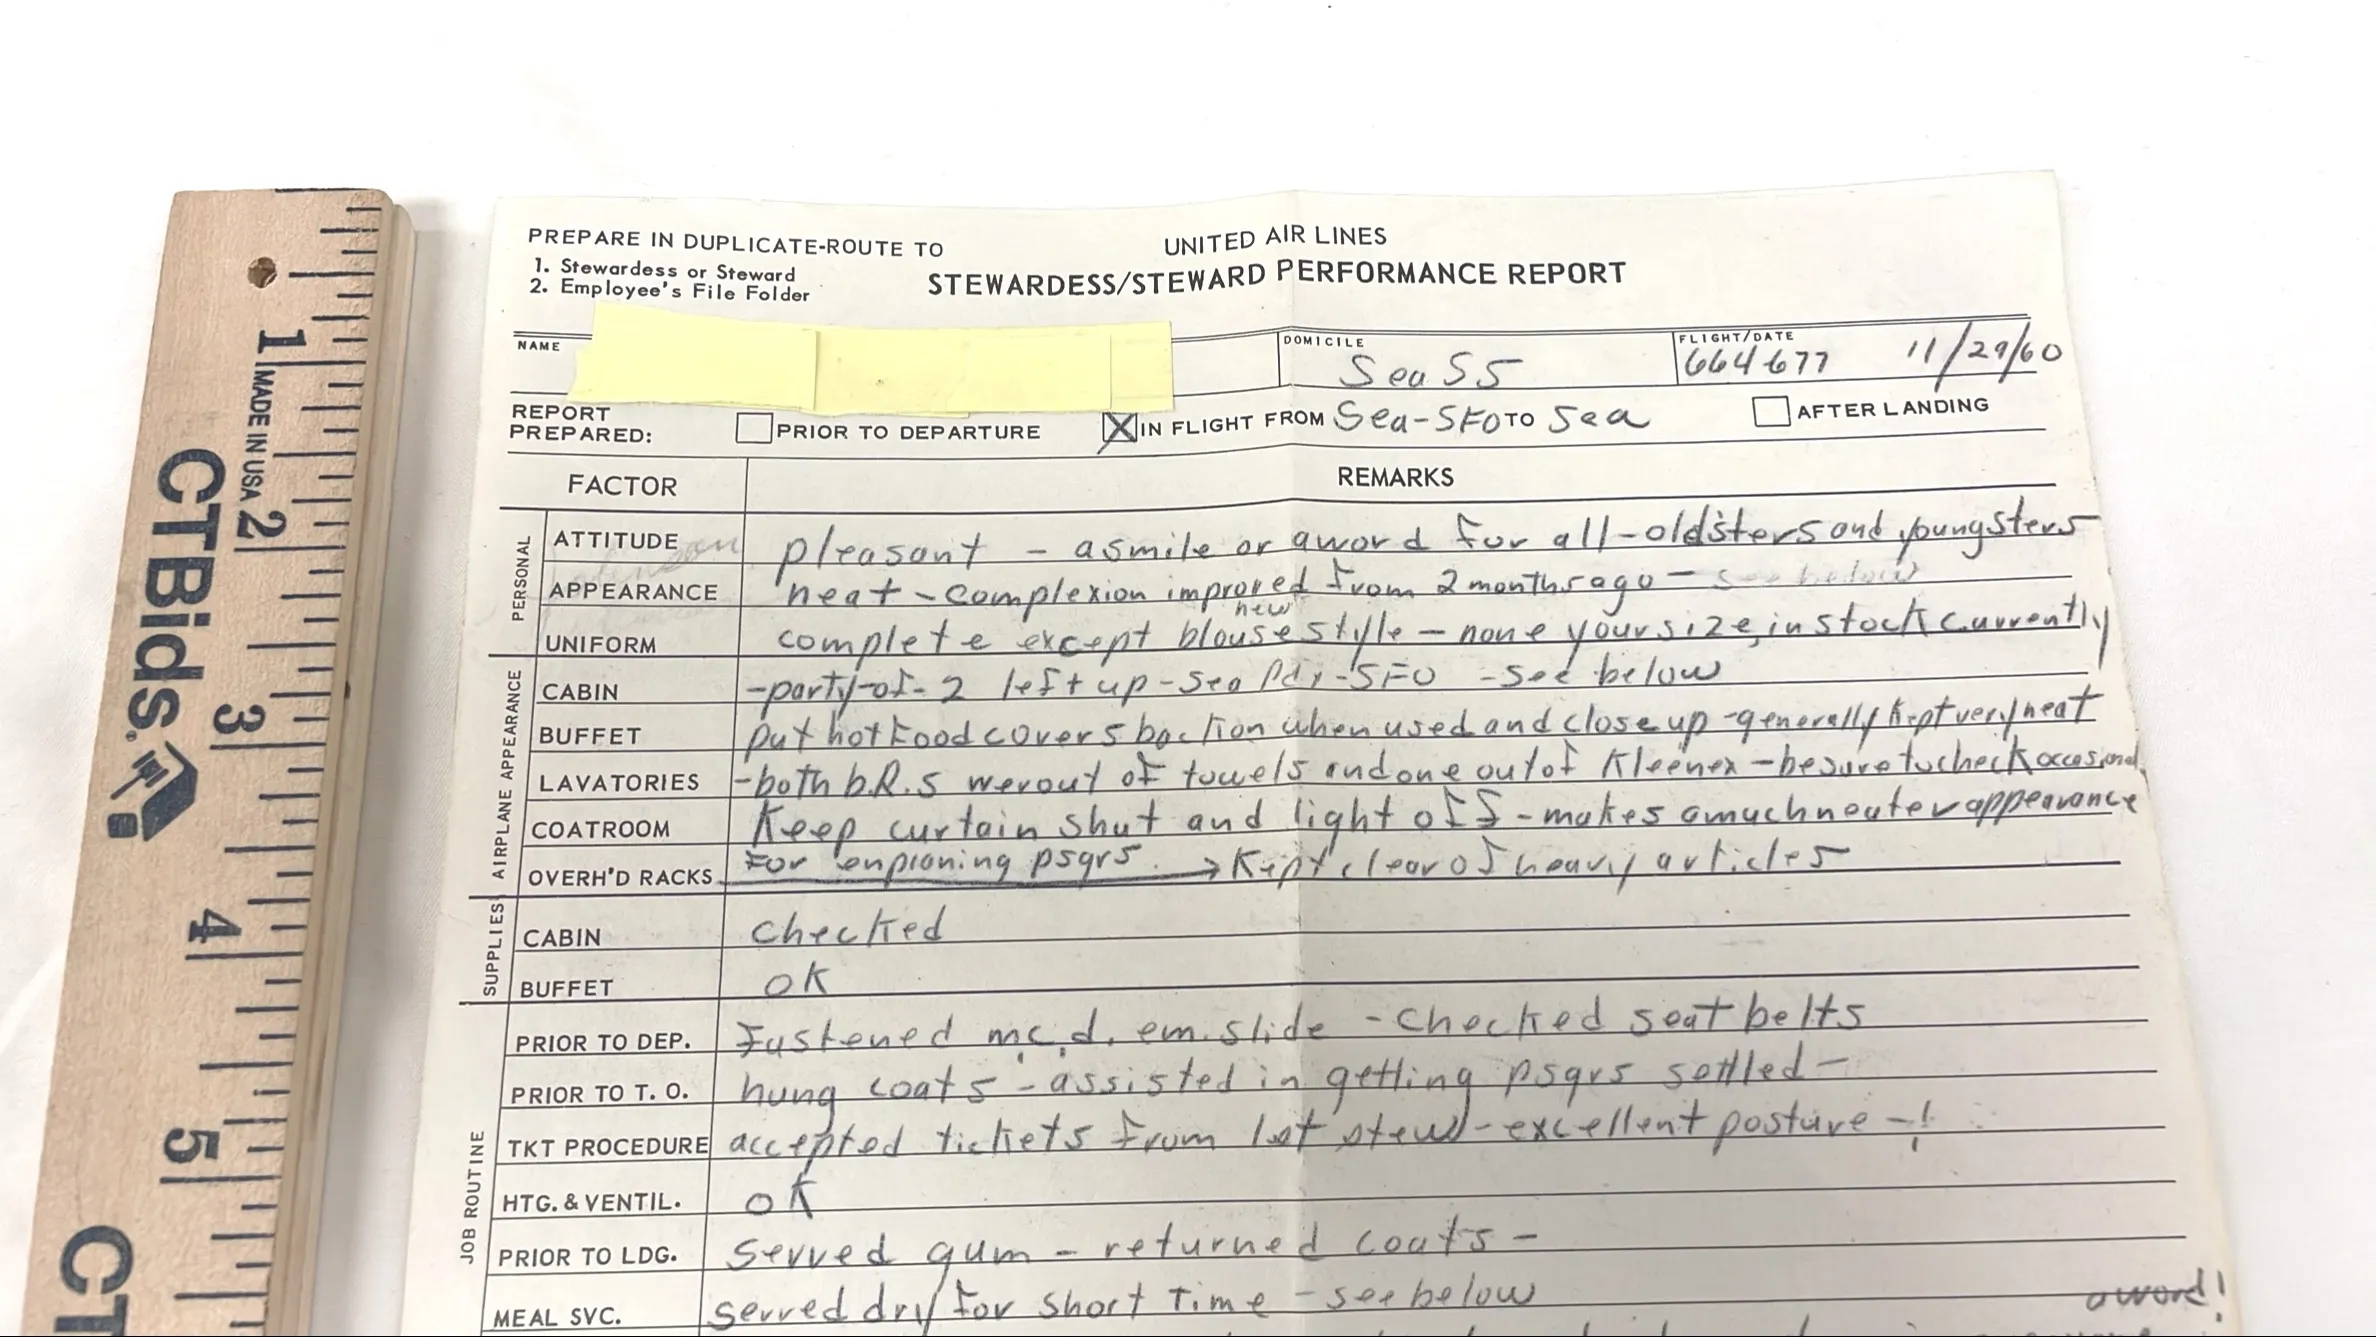 PREPARE IN DUPLICATE-ROUTE TO
1. Stewardess or Steward
2. Employee's File Folder
UNITED AIR LINES
STEWARDESS/STEWARD PERFORMANCE REPORT
NAME
DOMICILE Sea SS
FLIGHT/DATE 664 677 11/29/60
REPORT PREPARED: PRIOR TO DEPARTURE X IN FLIGHT FROM Sea-SFO TO Sea AFTER LANDING
FACTOR REMARKS
PERSONAL
ATTITUDE pleasant - a smile or a word for all - oldsters and youngsters
APPEARANCE neat - complexion improved from 2 months ago - see below
new
UNIFORM complete except blouse style - none your size, in stock currently
AIRPLANE APPEARANCE
CABIN - party-of-2 left up - Sea SFO - see below
BUFFET put hot food covers back on when used and close up - generally kept very neat
LAVATORIES - both b.R.s were out of towels and one out of Kleenex - be sure to check occasional.
COATROOM Keep curtain shut and light off - makes a much neater appearance
for enplaning psgrs.
OVERH'D RACKS → Kept clear of heavy articles
SUPPLIES
CABIN checked
BUFFET OK
JOB ROUTINE
PRIOR TO DEP. Fastened m.c.d. em. slide - checked seat belts
PRIOR TO T. O. hung coats - assisted in getting psgrs settled -
TKT PROCEDURE accepted tickets from 1st stew - excellent posture - !
HTG. & VENTIL. OK
PRIOR TO LDG. Served gum - returned coats -
MEAL SVC. served dry for short time - see below
a word!
1 MADE IN USA 2 3 4 5
CTBids.
CT